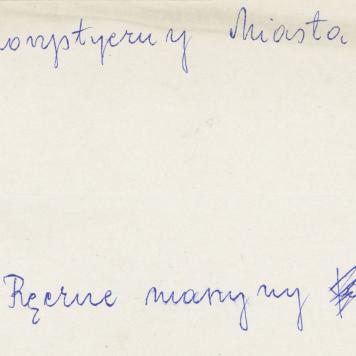 onystyczny Miasta
Ręczne maszyny